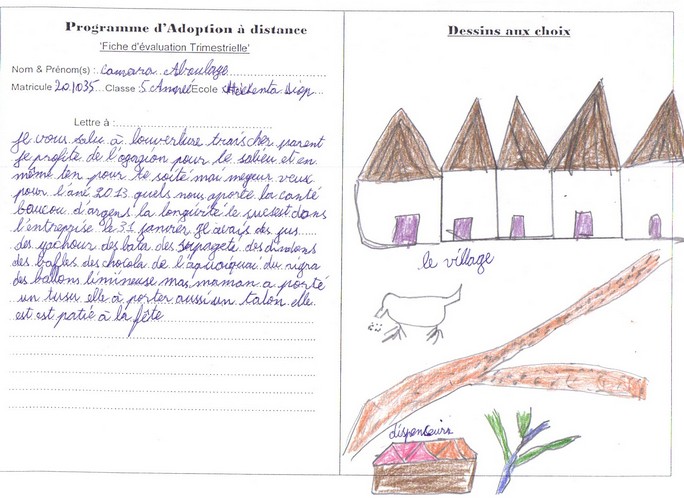 Programme d'Adoption à distance
'Fiche d'évaluation Trimestrielle'
Nom & Prénom(s) : Camara Aboulage
Matricule 201035 Classe 5 Année Ecole Diop
Lettre à :
Je vous salu à louverlure trais cher parent
je profite de l'ocagion pour le salieu et en
même ten pour le soité mai megeur veux
pour l'âné 2013 quels nous aporte la canté
boucou d'argens la longivité le sucsest dans
l'entreprise le 31 janvier je avais des jus
des yachour des bata des sepageté des dindons
des baffles des chocola de l'aquaiquai du nigra
des ballons limineuse mas maman a porté
un tusu elle à porter aussi un talon elle
est est patié à la fête
Dessins aux choix
le village
dispenteurs